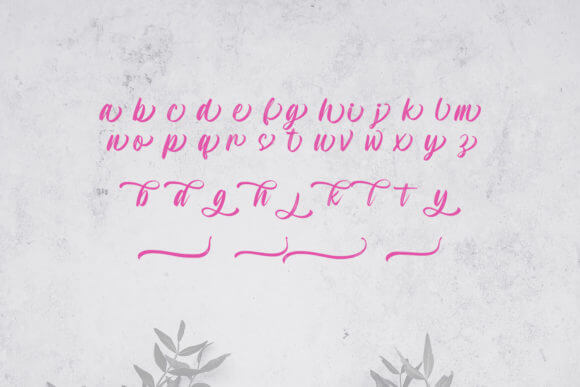 a b c d e f g h i j k l m
n o p q r s t u v w x y z
b d g h j k l t y